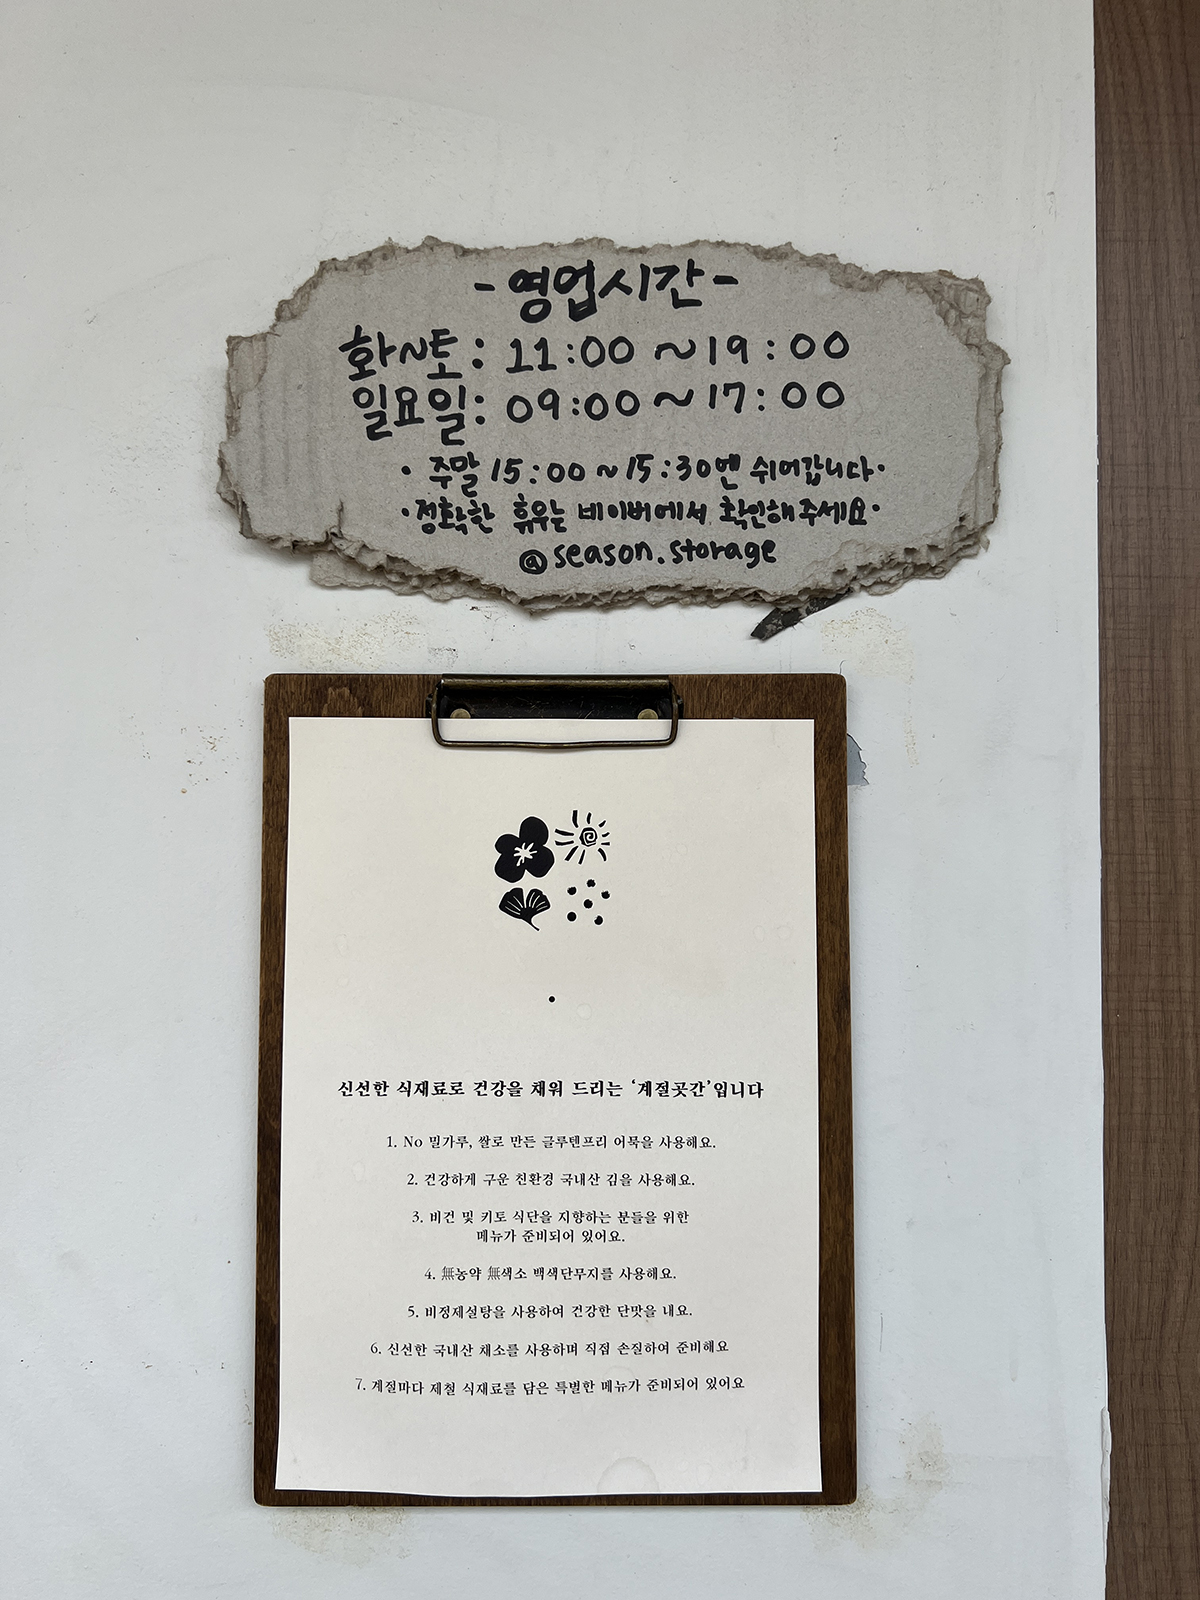 -영업시간-
화~토: 11:00 ~19:00
일요일: 09:00~17:00
· 주말 15:00~15:30엔 쉬어갑니다·
·정확한 휴무는 네이버에서 확인해주세요·
@season.storage
신선한 식재료로 건강을 채워 드리는 '계절곳간'입니다
1. No 밀가루, 쌀로 만든 글루텐프리 어묵을 사용해요.
2. 건강하게 구운 친환경 국내산 김을 사용해요.
3. 비건 및 키토 식단을 지향하는 분들을 위한
메뉴가 준비되어 있어요.
4. 無농약 無색소 백색단무지를 사용해요.
5. 비정제설탕을 사용하여 건강한 단맛을 내요.
6. 신선한 국내산 채소를 사용하며 직접 손질하여 준비해요
7. 계절마다 제철 식재료를 담은 특별한 메뉴가 준비되어 있어요